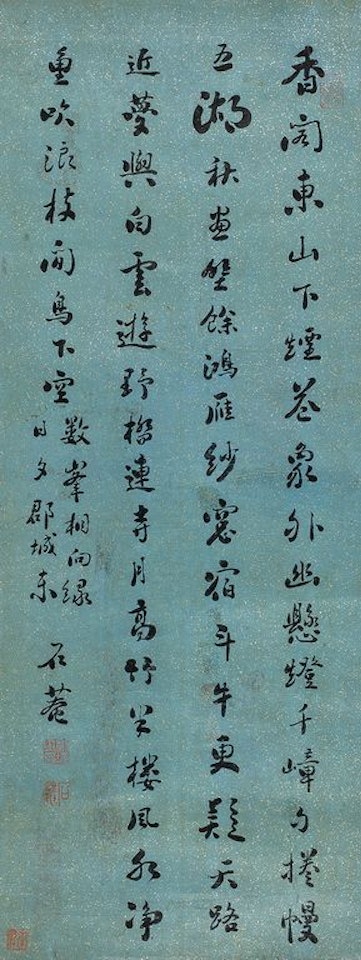 香閣東山下煙花象外幽懸燈千嶂夕捲幔
五湖秋畫壁餘鴻雁紗窓宿斗牛更疑天路
近夢與白雲遊野橋連寺月高竹半樓風水淨
魚吹浪枝閒鳥下空數峯相向綠
日夕郡城東
石菴